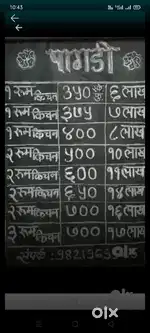 10:43
पागडी
१ रूम किचन ३५० ६ लाख
१ रूम किचन ३७५ ७ लाख
१ रूम किचन ४०० ८ लाख
२ रूम किचन ५०० १० लाख
२ रूम किचन ६०० ११ लाख
२ रूम किचन ६५० १४ लाख
२ रूम किचन ७०० १६ लाख
३ रूम किचन ७०० १७ लाख
संपर्क:- olx
olx